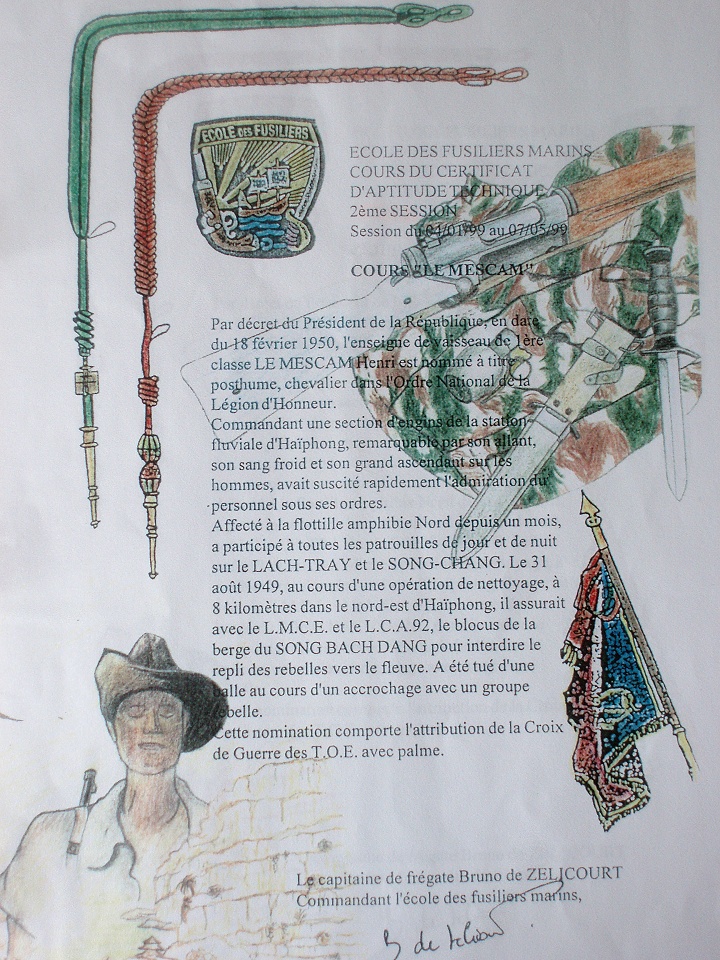 ECOLE DES FUSILIERS
ECOLE DES FUSILIERS MARINS
COURS DU CERTIFICAT
D'APTITUDE TECHNIQUE
2ème SESSION
Session du 04/01/99 au 07/05/99
COURS "LE MESCAM"
Par décret du Président de la République, en date
du 18 février 1950, l'enseigne de vaisseau de 1ère
classe LE MESCAM Henri est nommé à titre
posthume, chevalier dans l'Ordre National de la
Légion d'Honneur.
Commandant une section d'engins de la station
fluviale d'Haïphong, remarquable par son allant,
son sang froid et son grand ascendant sur les
hommes, avait suscité rapidement l'admiration du
personnel sous ses ordres.
Affecté à la flottille amphibie Nord depuis un mois,
a participé à toutes les patrouilles de jour et de nuit
sur le LACH-TRAY et le SONG-CHANG. Le 31
août 1949, au cours d'une opération de nettoyage, à
8 kilomètres dans le nord-est d'Haïphong, il assurait
avec le L.M.C.E. et le L.C.A.92, le blocus de la
berge du SONG BACH DANG pour interdire le
repli des rebelles vers le fleuve. A été tué d'une
balle au cours d'un accrochage avec un groupe
rebelle.
Cette nomination comporte l'attribution de la Croix
de Guerre des T.O.E. avec palme.
Le capitaine de frégate Bruno de ZELICOURT
Commandant l'école des fusiliers marins,
B de